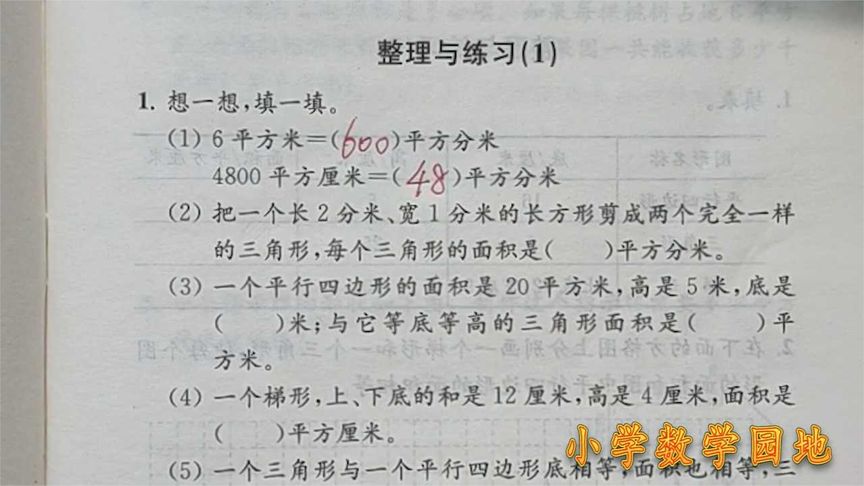 整理与练习(1)
1. 想一想,填一填。
(1) 6平方米=(600)平方分米
4800平方厘米=(48)平方分米
(2) 把一个长2分米、宽1分米的长方形剪成两个完全一样
的三角形,每个三角形的面积是(  )平方分米。
(3) 一个平行四边形的面积是20平方米,高是5米,底是
(  )米;与它等底等高的三角形面积是(  )平
方米。
(4) 一个梯形,上、下底的和是12厘米,高是4厘米,面积是
(  )平方厘米。
(5) 一个三角形与一个平行四边形底相等,面积也相等,三
小学数学园地